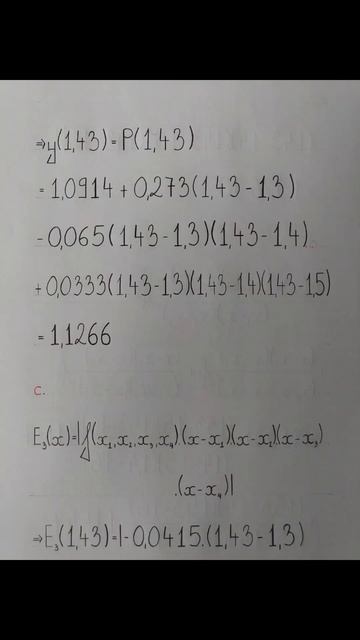 ⇒y(1,43)=P(1,43)
=1,0914+0,273(1,43-1,3)
-0,065(1,43-1,3)(1,43-1,4)
+0,0333(1,43-1,3)(1,43-1,4)(1,43-1,5)
=1,1266
c.
E₃(x)=|f(x₁,x₂,x₃,x₄).(x-x₁)(x-x₂)(x-x₃)
.(x-x₄)|
⇒E₃(1,43)=|-0,0415.(1,43-1,3)